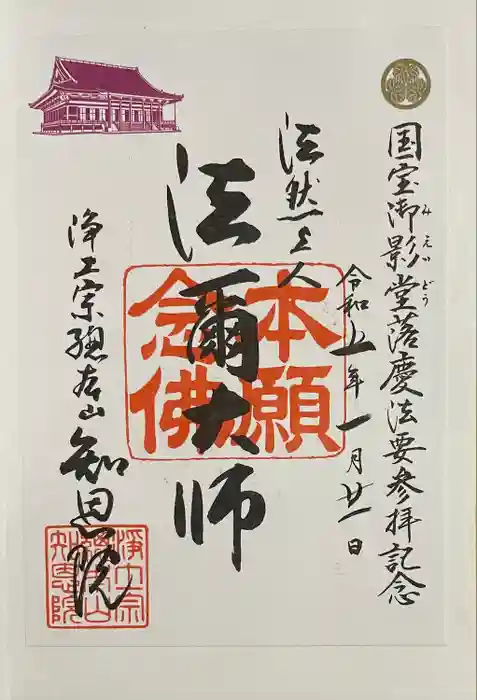 国宝御影堂落慶法要参拝記念
みえいどう
令和五年一月廿一日
法然上人
法爾大師
本願
念佛
浄土宗總本山
知恩院
浄土宗
總本山
知恩院